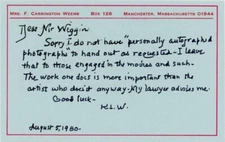 MRS. F. CARRINGTON WEEMS BOX 128 MANCHESTER, MASSACHUSETTS 01944
Dear Mr Wiggin
Sorry I do not have "personally autographed
photographs to hand out as requested - I leave
that to those engaged in the movies and such -
The work one does is more important than the
artist who does it anyway - My lawyer advises me
Good luck -
K.L.W.
August 5, 1980.